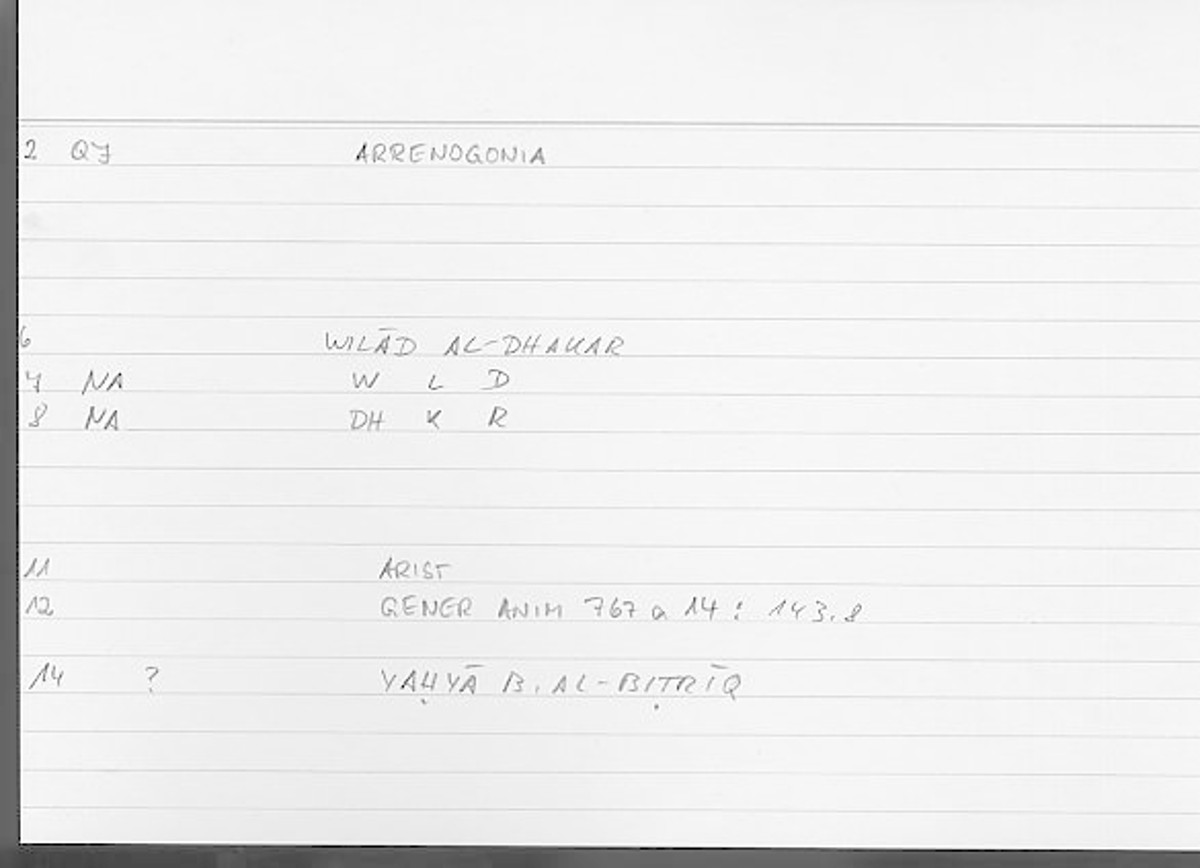 2 QJ ARRENOGONIA
6 WILĀD AL-DHAKAR
7 NA W L D
8 NA DH K R
11 ARIST
12 GENER ANIM 767 a 14 : 143.8
14 ? YAḤYĀ B. AL-BIṬRĪQ